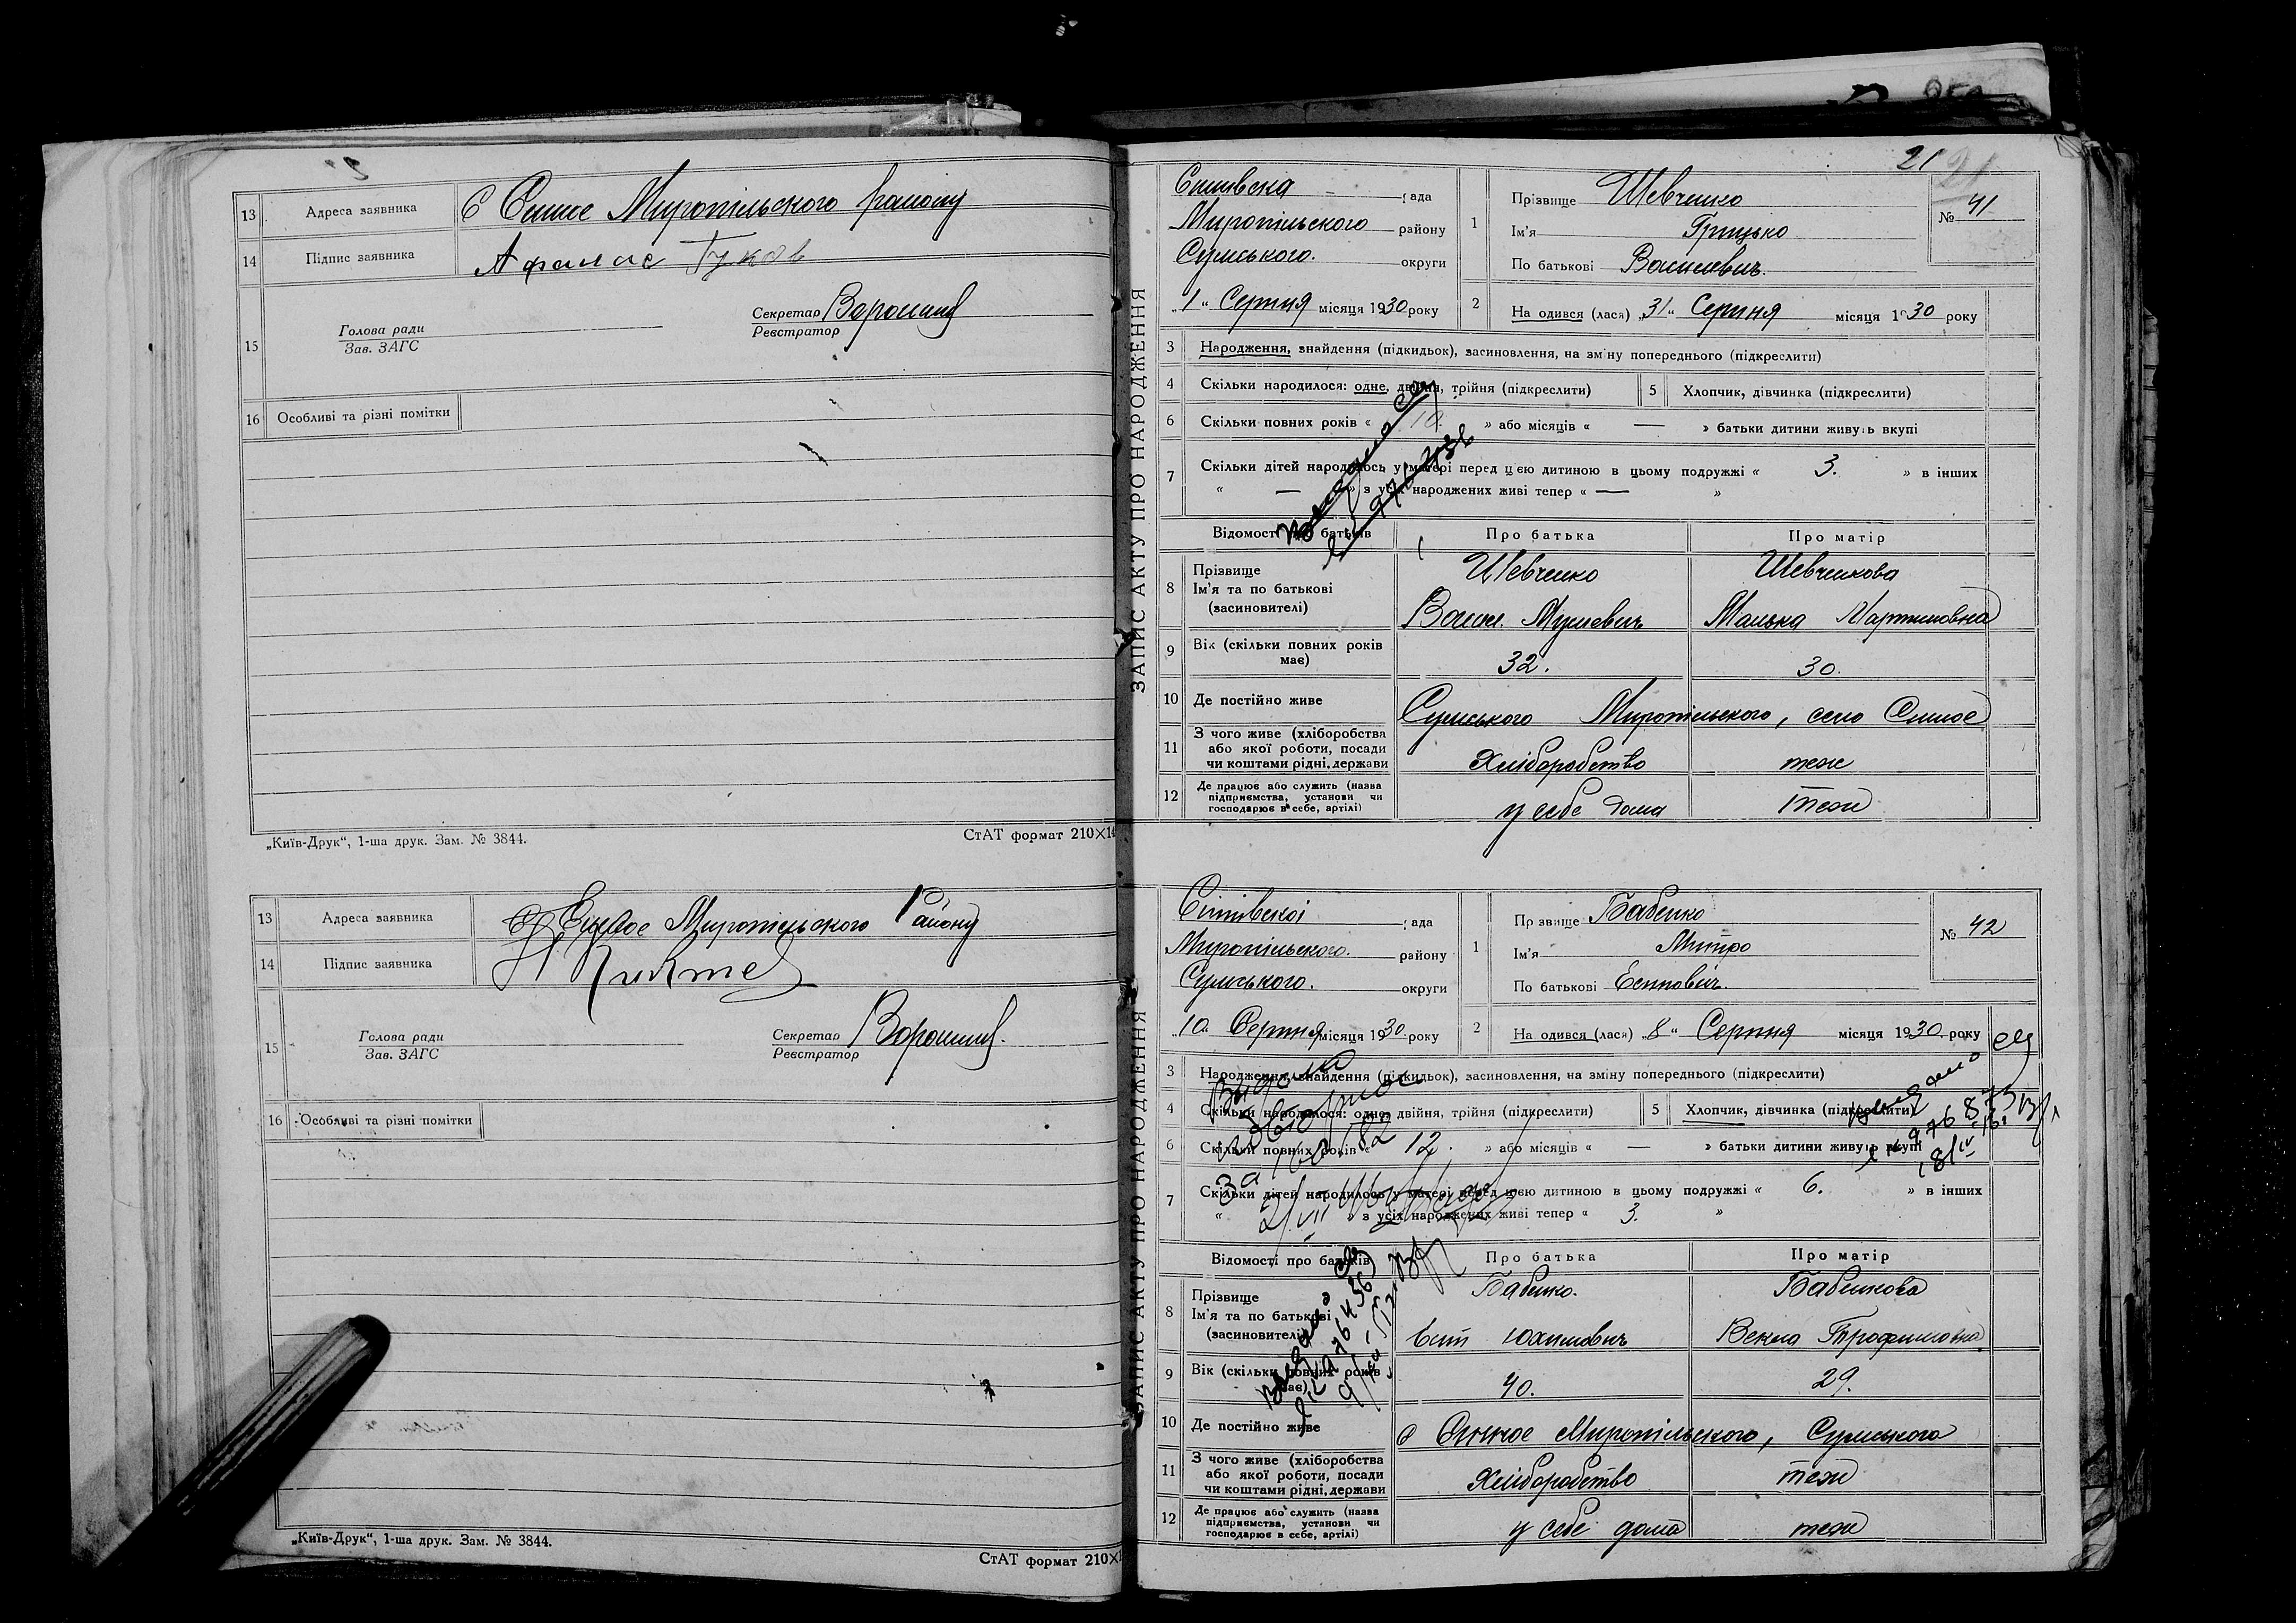 13 Адреса заявника С Синне Миропільского району
14 Підпис заявника Афанас Гуков
15 Голова ради
Зав. ЗАГС
Секретар
Реєстратор
16 Особливі та різні помітки
„Київ-Друк“, 1-ша друк. Зам. № 3844.
СтАТ формат 210×14
13 Адреса заявника Миропільского Району
14 Підпис заявника
15 Голова ради
Зав. ЗАГС
Секретар
Реєстратор
16 Особливі та різні помітки
„Київ-Друк“, 1-ша друк. Зам. № 3844.
СтАТ формат 210×1
21 21
ЗАПИС АКТУ ПРО НАРОДЖЕННЯ
рада
Миропільского району
Сумського. округи
„1“ Серпня місяця 1930 року
1 Прізвище Шевченко
Ім'я Грицько
По батькові Василевич.
№ 41
2 На одився (лася) „31“ Серпня місяця 1930 року
3 Народження, знайдення (підкидьок), засиновлення, на зміну попереднього (підкреслити)
4 Скільки народилося: одне, двійня, трійня (підкреслити)
5 Хлопчик, дівчинка (підкреслити)
6 Скільки повних років « 10. » або місяців « — » батьки дитини живуть вкупі
7 Скільки дітей народилось у матері перед цією дитиною в цьому подружжі « 3. » в інших
« — » з усіх народжених живі тепер « — »
Відомості про батьків Про батька Про матір
8 Прізвище
Ім'я та по батькові
(засиновителі)
Шевченко Шевченкова
Манька Мартиновна
9 Вік (скільки повних років
має) 32. 30.
10 Де постійно живе Сумського Миропільского, село Синое
11 З чого живе (хліборобства
або якої роботи, посади
чи коштами рідні, держави
Хліборобство теж
12 Де працює або служить (назва
підприємства, установи чи
господарює в себе, артілі)
у себе дома теж
ЗАПИС АКТУ ПРО НАРОДЖЕННЯ
рада
Миропільского. району
Сумського. округи
„10. Серпня місяця 1930 року
1 Пр звище Бабенко
Ім'я Митро
По батькові
№ 42
2 На одився (лася) „8“ Серпня місяця 1930 року
3 Народження, знайдення (підкидьок), засиновлення, на зміну попереднього (підкреслити)
4 Скільки народилося: одне, двійня, трійня (підкреслити)
5 Хлопчик, дівчинка (підкреслити)
6 Скільки повних років « 12. » або місяців « — » батьки дитини живуть вкупі
7 Скільки дітей народилось у матері перед цією дитиною в цьому подружжі « 6. » в інших
« » з усіх народжених живі тепер « 3. »
Відомості про батьків Про батька Про матір
8 Прізвище
Ім'я та по батькові
(засиновителі)
Бабенко. Бабенкова
Юхимович Трофимовна
9 Вік (скільки повних років
має) 40. 29.
10 Де постійно живе с Миропільского, Сумського
11 З чого живе (хліборобства
або якої роботи, посади
чи коштами рідні, держави
Хліборобство теж
12 Де працює або служить (назва
підприємства, установи чи
господарює в себе, артілі)
у себе дома теж